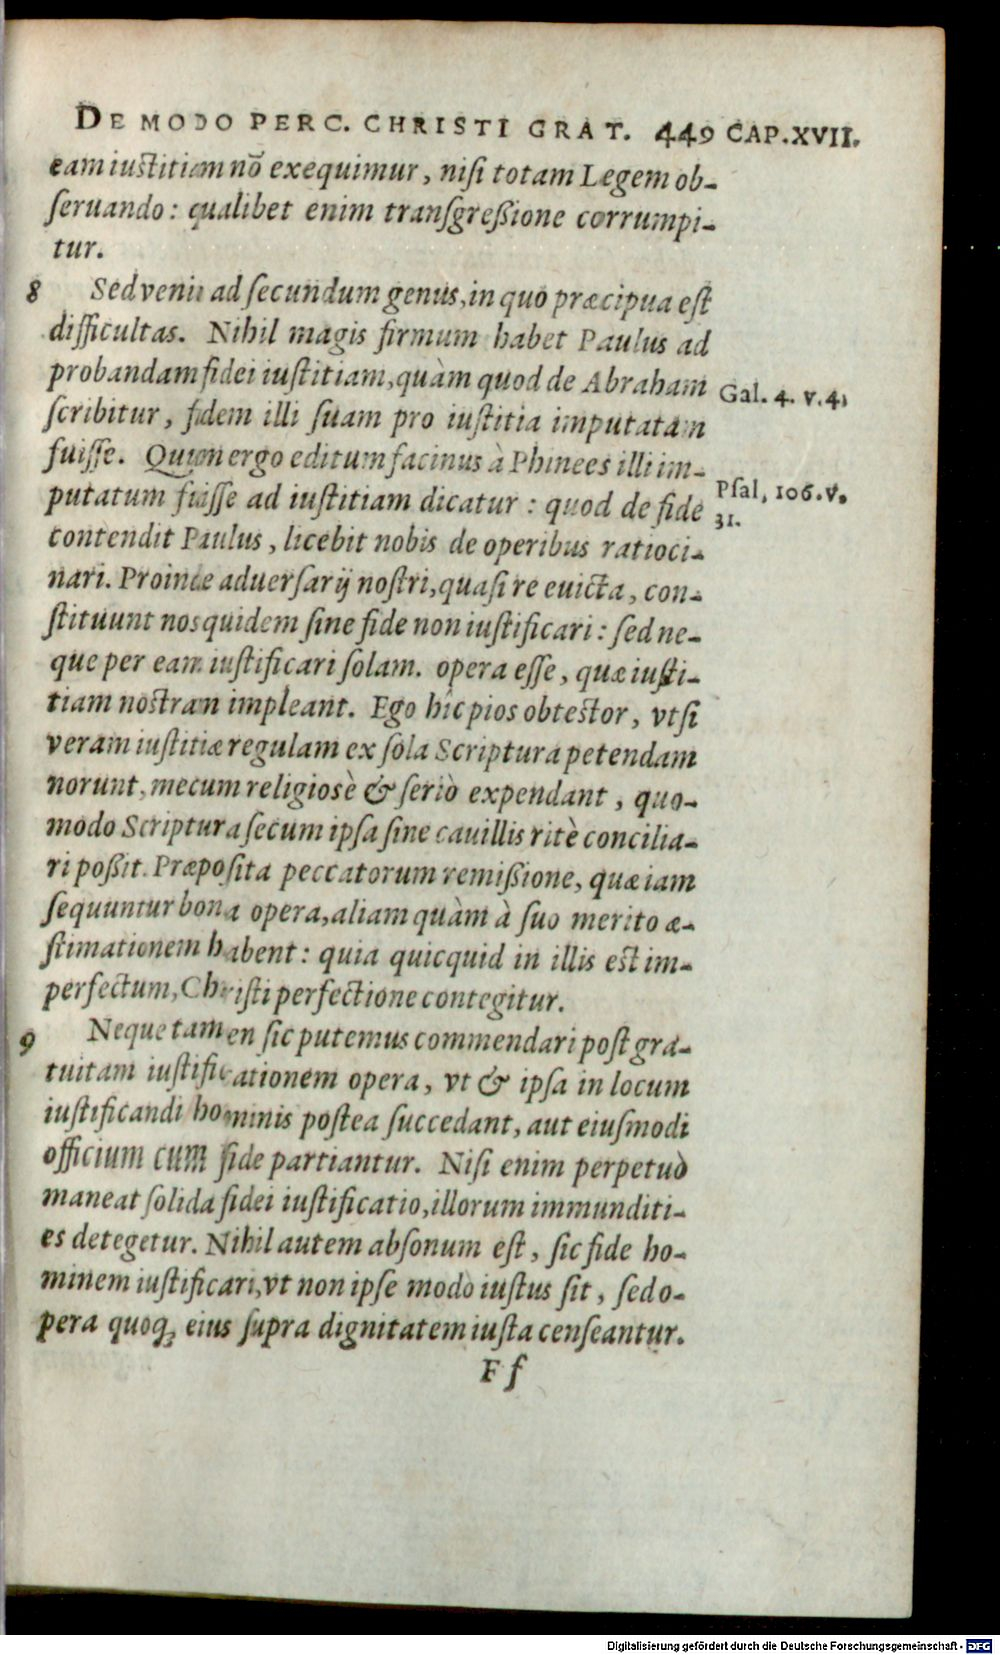 DE MODO PERC. CHRISTI GRAT. 449 CAP.XVII.
eam iustitiam nõ exequimur, nisi totam Legem ob-
seruando: qualibet enim transgreßione corrumpi-
tur.
8 Sed venio ad secundum genus, in quo præcipua est
difficultas. Nihil magis firmum habet Paulus ad
probandam fidei iustitiam, quàm quod de Abraham
Gal. 4. v.4.
scribitur, fidem illi suam pro iustitia imputatam
fuisse. Quum ergo editum facinus à Phinees illi im-
Psal. 106.v.
31.
putatum fuisse ad iustitiam dicatur: quod de fide
contendit Paulus, licebit nobis de operibus ratioci-
nari. Proinde aduersarij nostri, quasi re euicta, con-
stituunt nos quidem sine fide non iustificari: sed ne-
que per eam iustificari solam. opera esse, quæ iusti-
tiam nostram impleant. Ego hîc pios obtestor, vt si
veram iustitiæ regulam ex sola Scriptura petendam
norunt, mecum religiosè & seriò expendant, quo-
modo Scriptura secum ipsa sine cauillis ritè concilia-
ri poßit. Præposita peccatorum remißione, quæ iam
sequuntur bona opera, aliam quàm à suo merito æ-
stimationem habent: quia quicquid in illis est im-
perfectum, Christi perfectione contegitur.
9 Neque tamen sic putemus commendari post gra-
tuitam iustificationem opera, vt & ipsa in locum
iustificandi hominis postea succedant, aut eiusmodi
officium cum fide partiantur. Nisi enim perpetuò
maneat solida fidei iustificatio, illorum immunditi-
es detegetur. Nihil autem absonum est, sic fide ho-
minem iustificari, vt non ipse modò iustus sit, sed o-
pera quoq; eius supra dignitatem iusta censeantur.
F f
Digitalisierung gefördert durch die Deutsche Forschungsgemeinschaft - DFG